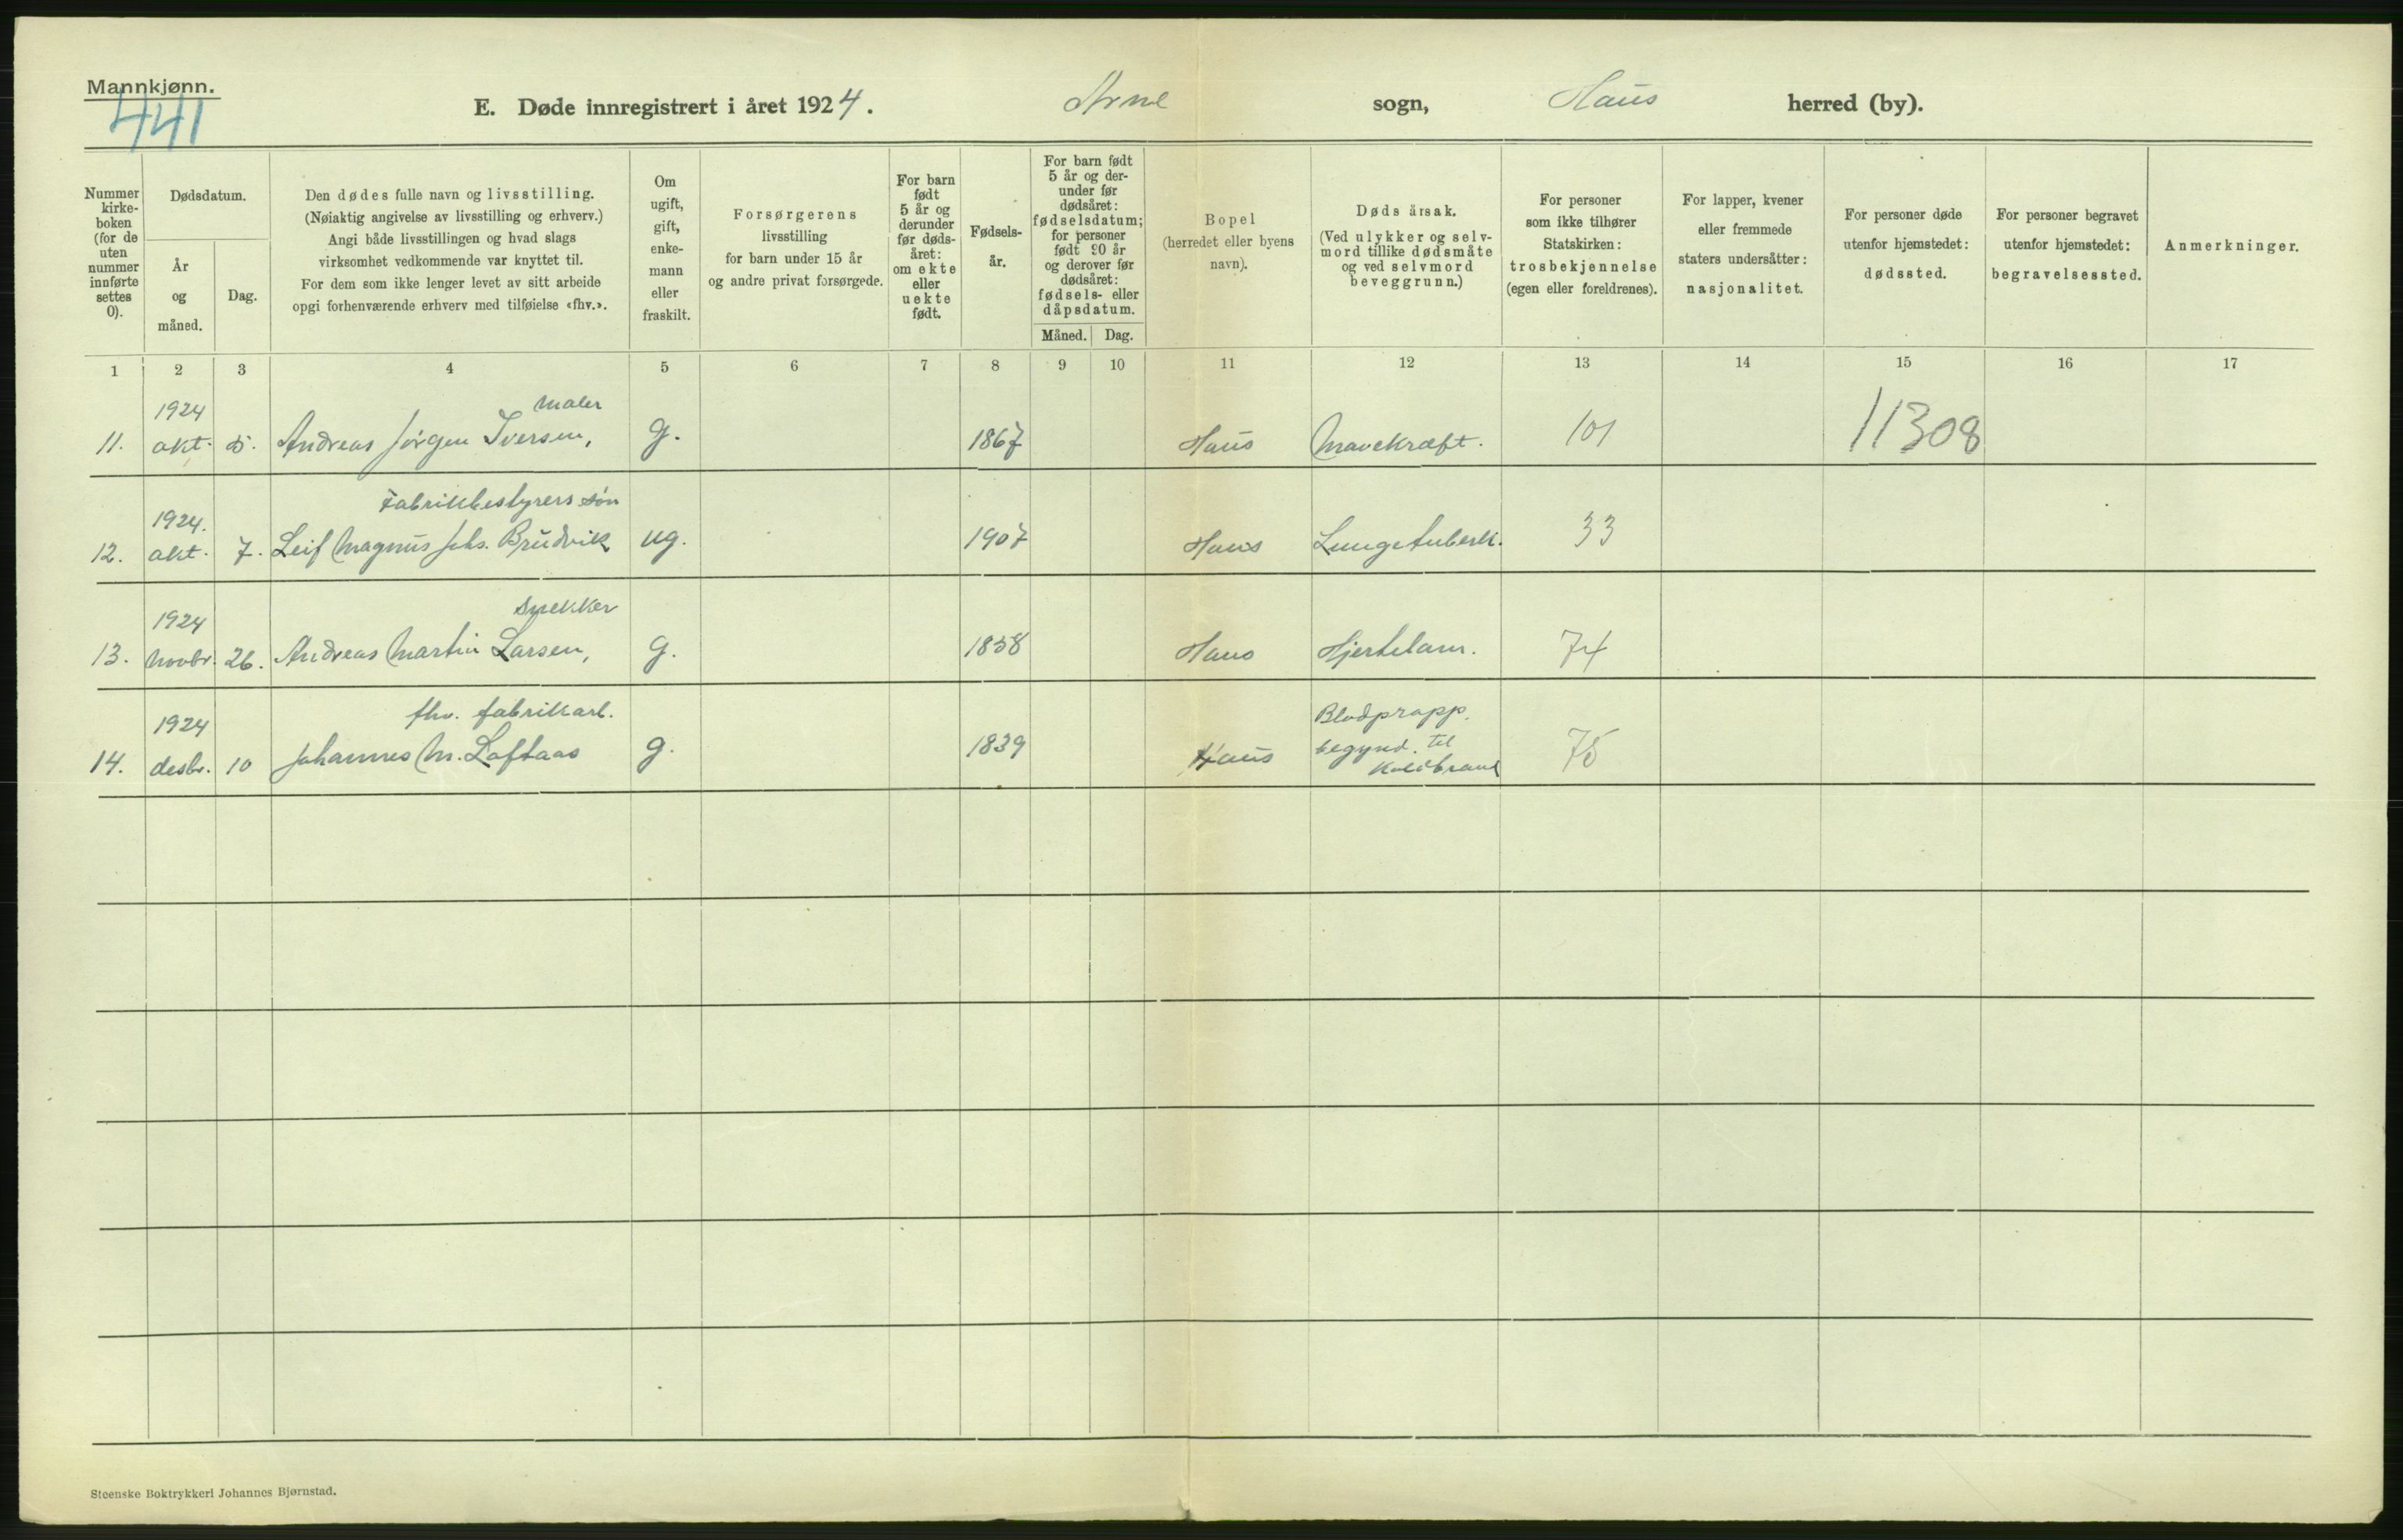 Mannkjønn.
441
E. Døde innregistrert i året 1924.
Arne sogn, Haus herred (by).
Nummer kirke- boken (for de uten nummer innførte settes 0).
Dødsdatum.
År og måned.
Dag.
Den dødes fulle navn og livsstilling.
(Nøiaktig angivelse av livsstilling og erhverv.)
Angi både livsstillingen og hvad slags
virksomhet vedkommende var knyttet til.
For dem som ikke lenger levet av sitt arbeide
opgi forhenværende erhverv med tilføielse «fhv.».
Om ugift, gift, enke- mann eller fraskilt.
Forsørgerens
livsstilling
for barn under 15 år
og andre privat forsørgede.
For barn født 5 år og derunder før døds- året: om ekte eller uekte født.
Fødsels- år.
For barn født 5 år og der- under før dødsåret: fødselsdatum; for personer født 90 år og derover før dødsåret: fødsels- eller dåpsdatum.
Måned.
Dag.
Bopel
(herredet eller byens
navn).
Døds årsak.
(Ved ulykker og selv-
mord tillike dødsmåte
og ved selvmord
beveggrunn.)
For personer
som ikke tilhører
Statskirken:
trosbekjennelse
(egen eller foreldrenes).
For lapper, kvener
eller fremmede
staters undersåtter:
nasjonalitet.
For personer døde
utenfor hjemstedet:
dødssted.
For personer begravet
utenfor hjemstedet:
begravelsessted.
Anmerkninger.
1 2 3 4 5 6 7 8 9 10 11 12 13 14 15 16 17
1924 maler
11. okt. 5. Andreas Jørgen Iversen, g. 1867 Haus Mavekræft. 101 11308
1924. Fabrikbestyrers søn
12. okt. 7. Leif Magnus Johs. Brudvik ug. 1907 Haus Lungetuberk. 33
1924 snekker
13. novbr. 26. Andreas Martin Larsen, g. 1858 Haus Hjertelam. 74
1924 fhv. fabrikarb. Blodpropp,
14. desbr. 10 Johannes M. Loftaas g. 1839 Haus begynd. til 75
Koldbrand
Steenske Boktrykkeri Johannes Bjørnstad.